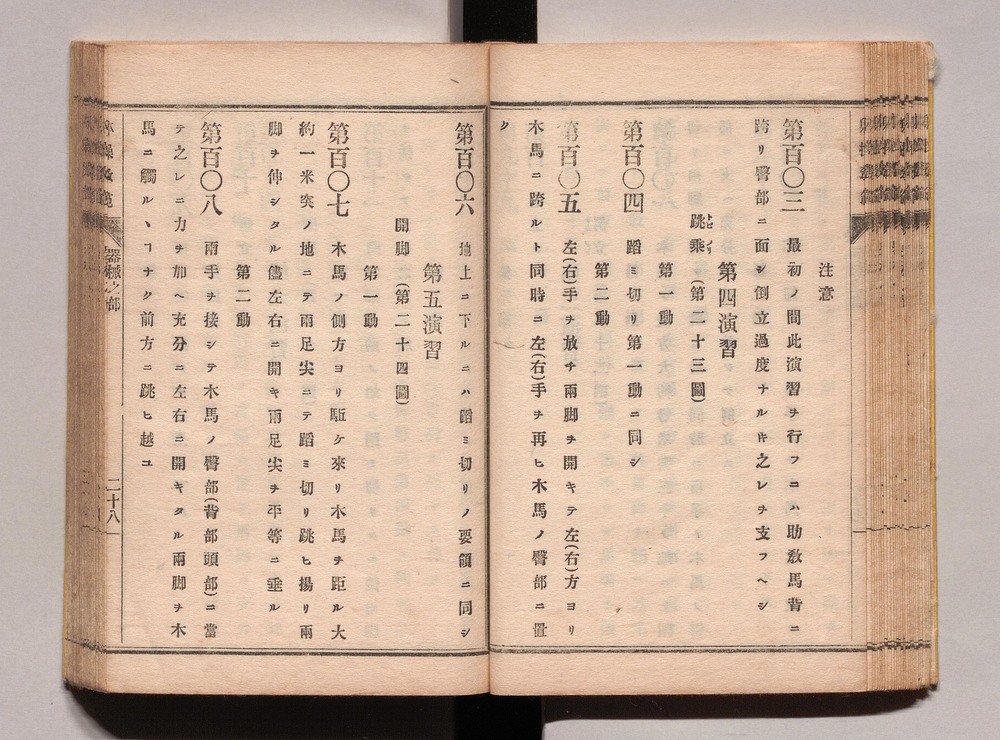 注意
第百〇三 最初ノ間此演習ヲ行フニハ助敎馬背ニ
跨リ臀部ニ面シ倒立過度ナルキ之レヲ支フヘシ
第四演習
跳乘(第二十三圖)
第一動
第百〇四 蹈ミ切リ第一動ニ同シ
第二動
第百〇五 左(右)手ヲ放チ兩脚ヲ開キテ左(右)方ヨリ
木馬ニ跨ルト同時ニ左(右)手ヲ再ヒ木馬ノ臀部ニ置
ク
第百〇六 地上ニ下ルニハ蹈ミ切リノ要領ニ同シ
第五演習
開脚(第二十四圖)
第一動
第百〇七 木馬ノ側方ヨリ駈ケ來リ木馬ヲ距ル大
約一米突ノ地ニテ兩足尖ニテ蹈ミ切リ跳ヒ揚リ兩
脚ヲ伸シタル儘左右ニ開キ兩足尖ヲ平等ニ垂ル
第二動
第百〇八 兩手ヲ接シテ木馬ノ臀部(背部頭部)ニ當
テ之レニ力ヲ加ヘ充分ニ左右ニ開キタル兩脚ヲ木
馬ニ觸ルヽヿナク前方ニ跳ヒ越ユ
器械之部
二十八